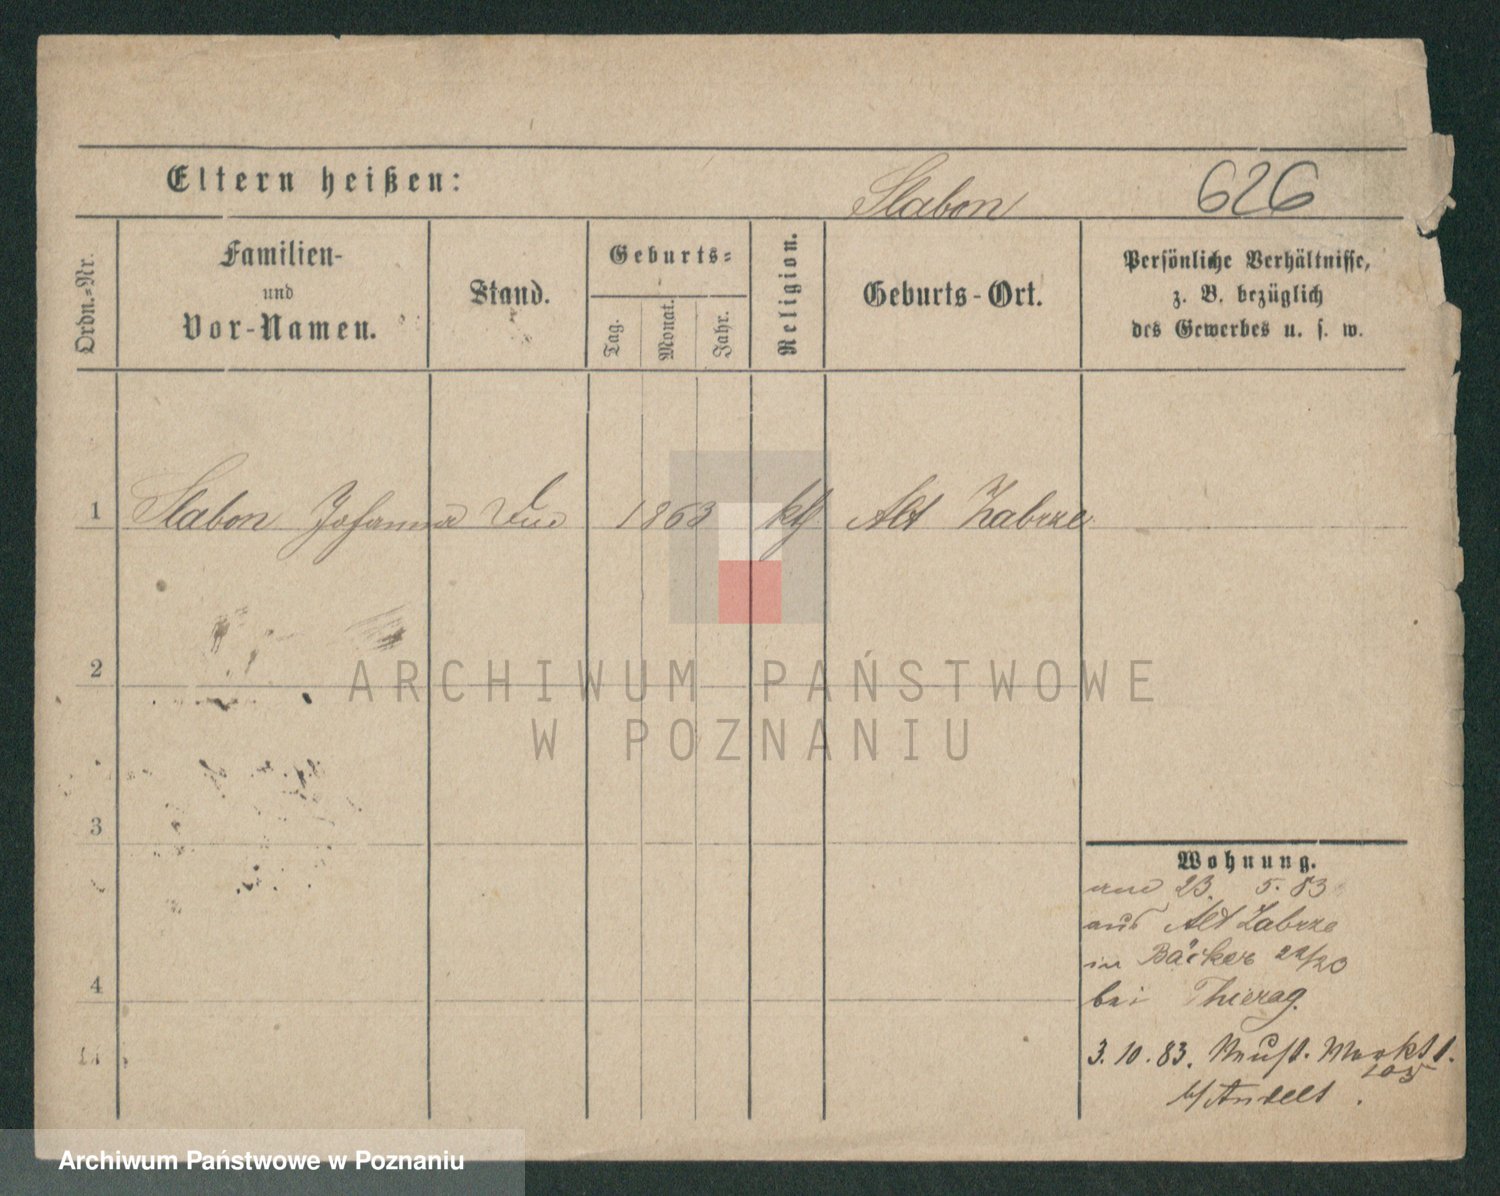 Eltern heißen:
Slabon
626
Ordn.=Nr.
Familien-
und
Vor-Namen.
Stand.
Geburts=
Tag.
Monat.
Jahr.
Religion.
Geburts-Ort.
Persönliche Verhältnisse,
z. B. bezüglich
des Gewerbes u. s. w.
1 Slabon Johanna 1863 kth Alt Zabrze
2
3
4
Wohnung.
23. 5. 83
aus Alt Zabrze
in Bäcker 22/20
bei Thierag.
3. 10. 83. Neust. Markt 1.
103
b/ Andelt.
ARCHIWUM PAŃSTWOWE
W POZNANIU
Archiwum Państwowe w Poznaniu